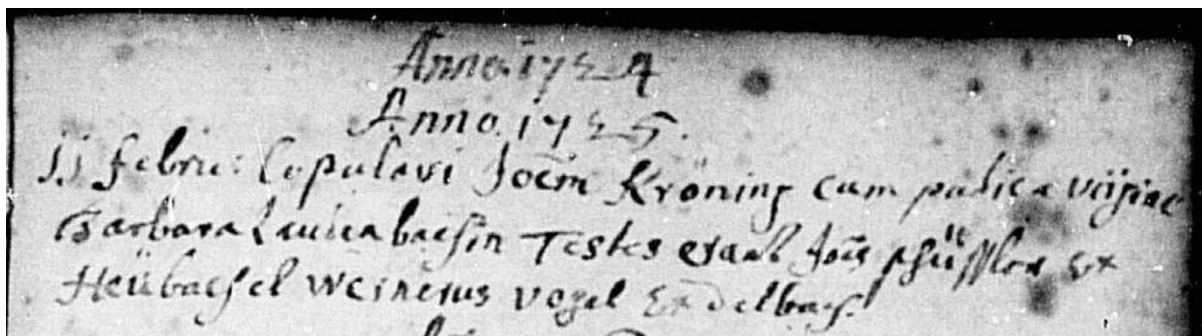 Anno. 1724
Anno. 1725.
11 febru: Copulavi Joem Kröning cum pudica virgine
Barbara Laudenbachin Testes erant Jois ex
Heübach et Wernerus Vogel ex